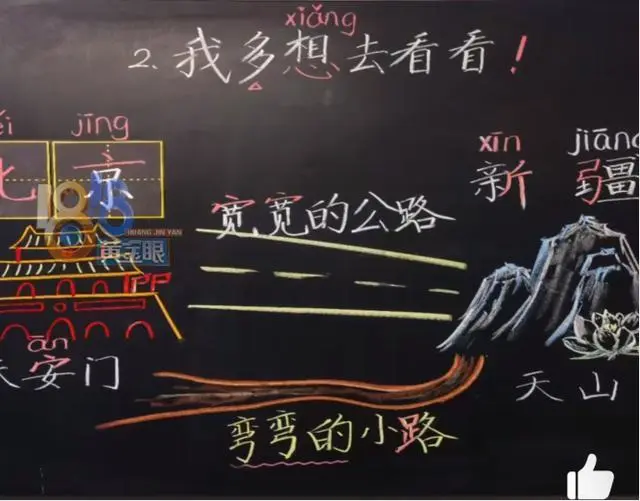 xiǎng
2. 我多想去看看!
ěi jīng
北京
xīn jiāng
新疆
1818
HUANG JIN YAN
黄金眼
宽宽的公路
ān
天安门
天山
弯弯的小路